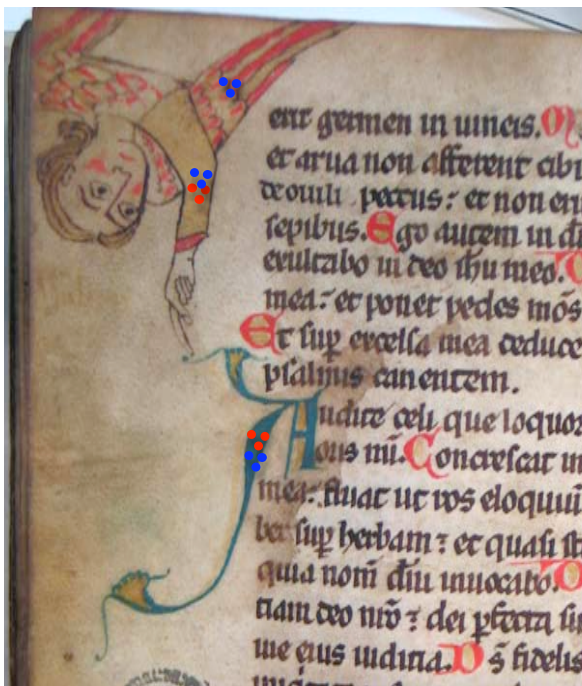 erit germen in uineis. O
et arua non afferent cibu
de ouili pecus: et non eri
sepibus. Ego autem in d
exultabo in deo ihu meo.
mea: et ponet pedes
Et sup excelsa mea deduce
psalmis canentem.
Audite celi que loquor
oris mi. Concrescat in
mea: fluat ut ros eloquiu
ber sup herbam: et quasi sti
quia nom dni inuocabo.
tiam deo nro: dei pfecta su
uie eius iuditia. D s fidelis